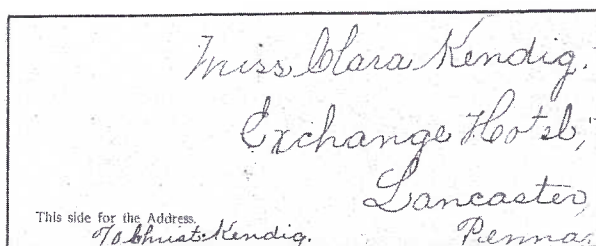 Miss Clara Kendig.
Exchange Hotel,
Lancaster,
Penna,
This side for the Address.
℅ Christ. Kendig.